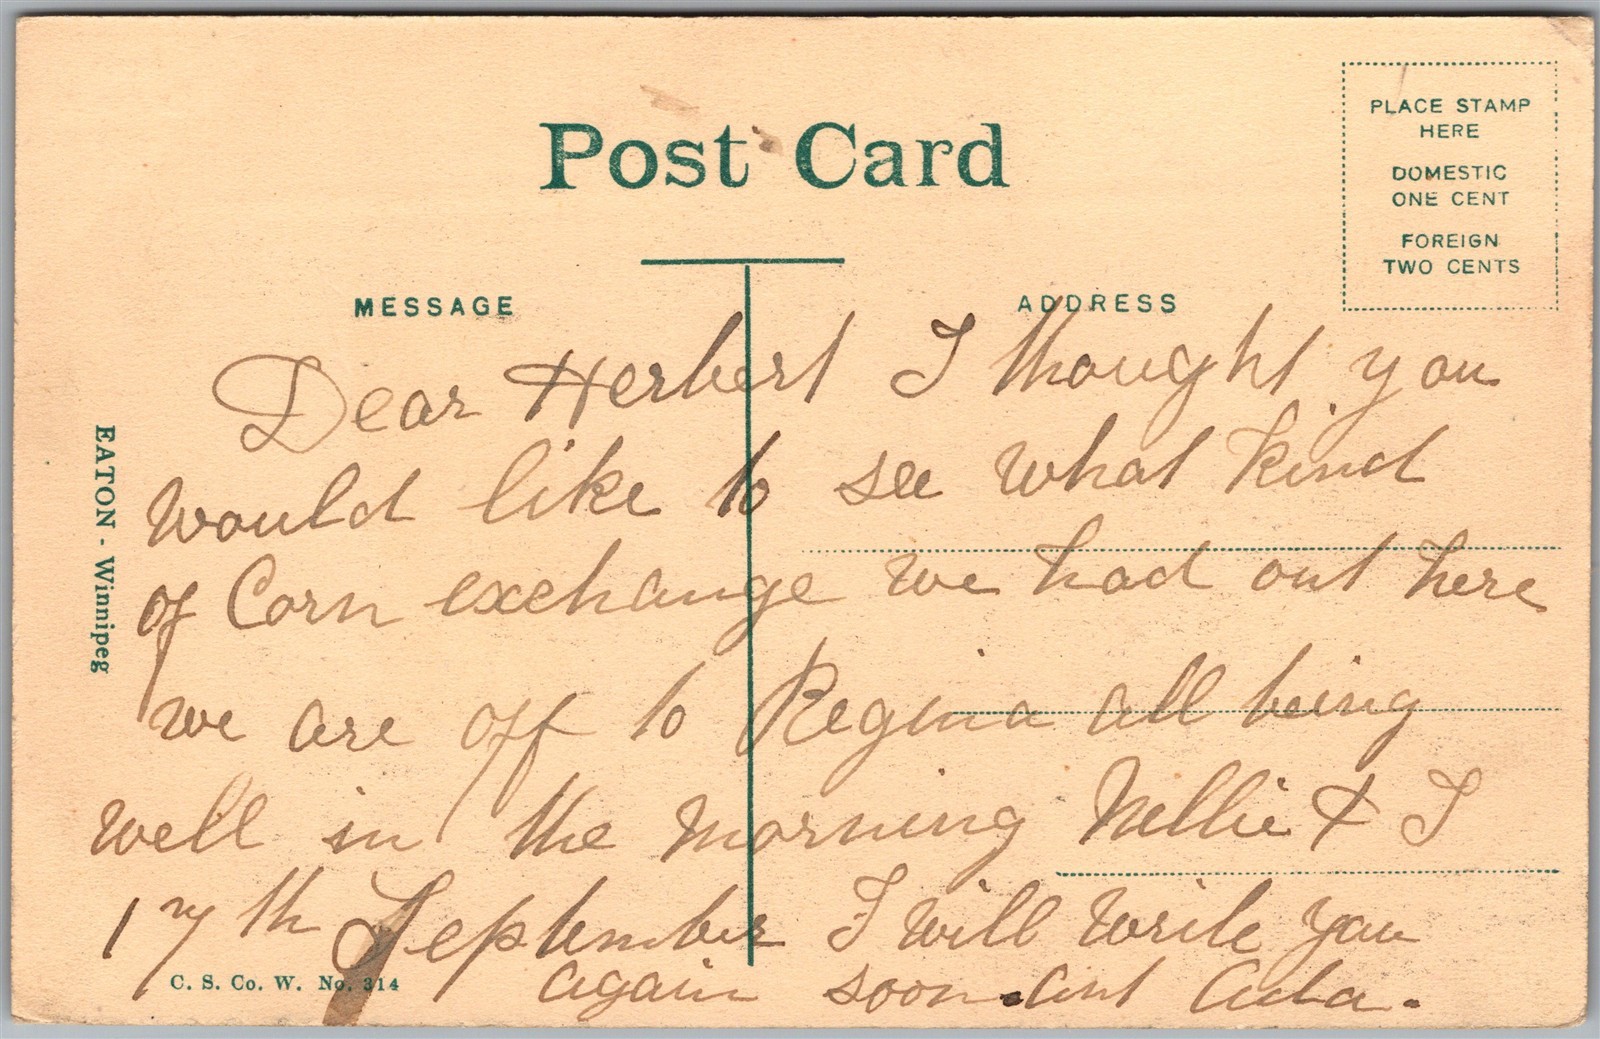 Post Card
PLACE STAMP
HERE
DOMESTIC
ONE CENT
FOREIGN
TWO CENTS
MESSAGE
ADDRESS
Dear Herbert I thought you
would like to see what kind
of Corn exchange we had out here
we are off to Regina all being
well in the morning Nellie & I
17th September I will write you
again soon. Aunt Ada.
EATON - Winnipeg
C. S. Co. W. No. 314